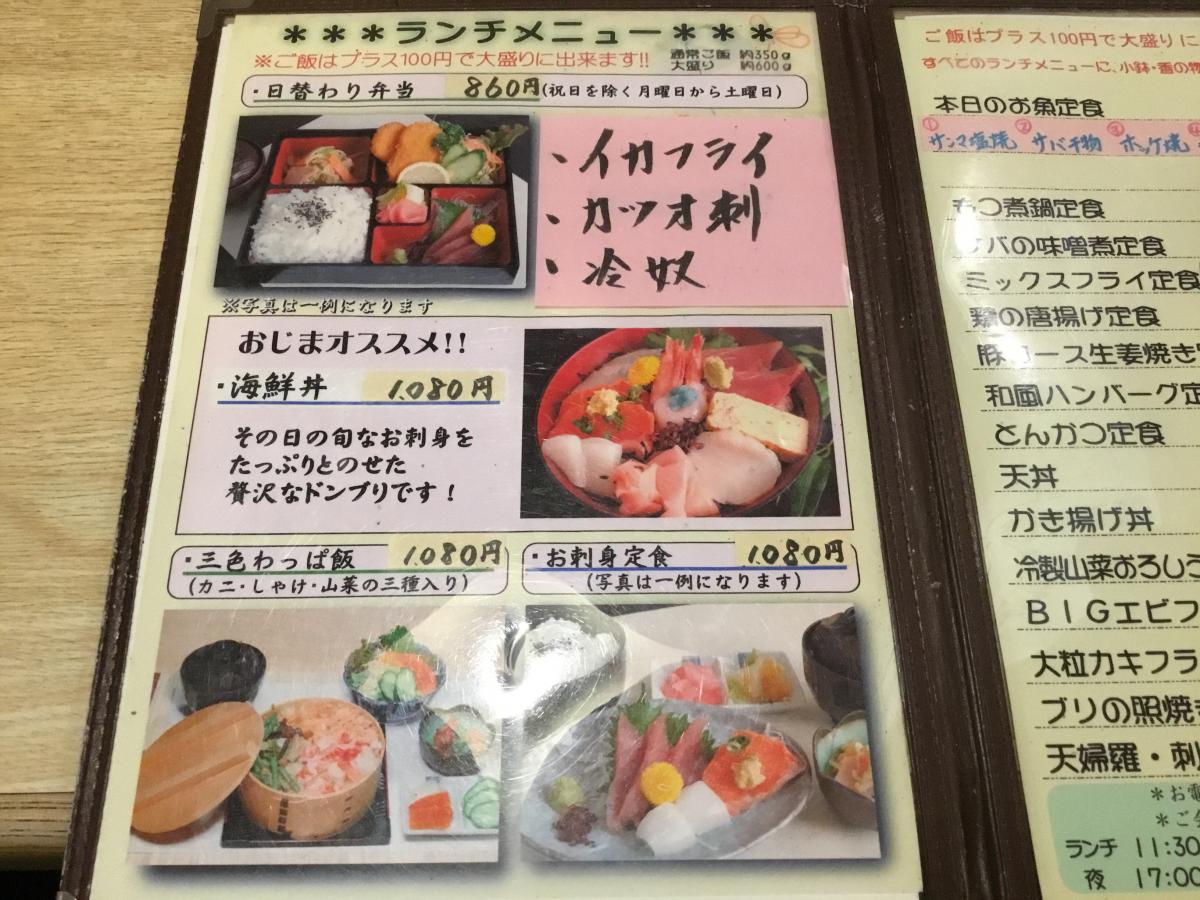 ＊＊＊ランチメニュー＊＊＊
※ご飯はプラス100円で大盛りに出来ます!!
通常ご飯 約350g
大盛り 約600g
・日替わり弁当 860円(祝日を除く月曜日から土曜日)
、イカフライ
、カツオ刺
・冷奴
※写真は一例になります
おじまオススメ!!
・海鮮丼 1.080円
その日の旬なお刺身を
たっぷりとのせた
贅沢なドンブリです！
・三色わっぱ飯 1.080円
(カニ・しゃけ・山菜の三種入り)
・お刺身定食 1.080円
(写真は一例になります)
ご飯はプラス100円で大盛りに
すべてのランチメニューに、小鉢・香の物
本日のお魚定食
①サンマ塩焼 ②サバ干物 ③ホッケ焼
もつ煮鍋定食
サバの味噌煮定食
ミックスフライ定食
鶏の唐揚げ定食
豚ロース生姜焼き
和風ハンバーグ定
とんかつ定食
天丼
かき揚げ丼
冷製山菜おろしう
ＢＩＧエビフ
大粒カキフラ
ブリの照焼き
天婦羅・刺
＊お電
＊ご
ランチ 11:30
夜 17:00